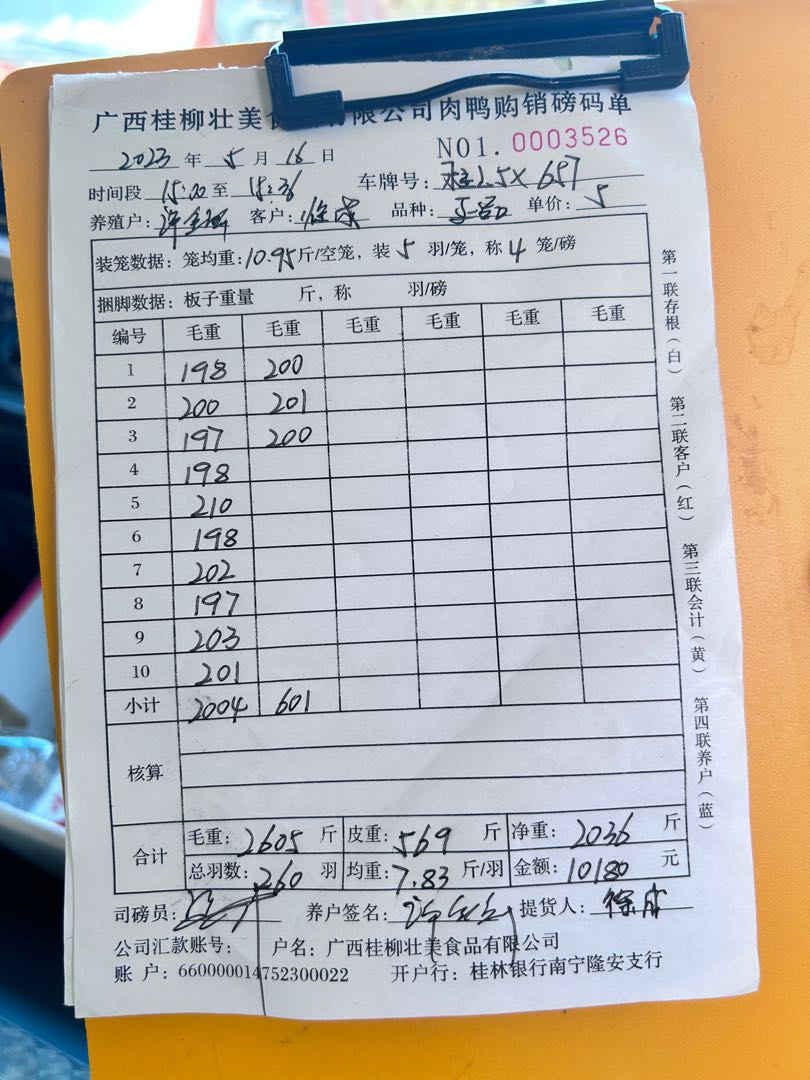 广西桂柳壮美食品有限公司肉鸭购销磅码单
NO1. 0003526
2023 年 5 月 16 日
时间段 15:00 至 15:36 车牌号:
养殖户: 客户: 徐 品种: 单价: 5
装笼数据: 笼均重: 10.95 斤/空笼, 装 5 羽/笼, 称 4 笼/磅
捆脚数据: 板子重量 斤, 称 羽/磅
编号 毛重 毛重 毛重 毛重 毛重 毛重
1 198 200
2 200 201
3 197 200
4 198
5 210
6 198
7 202
8 197
9 203
10 201
小计 2004 601
核算
合计 毛重: 2605 斤 皮重: 569 斤 净重: 2036 斤
总羽数: 260 羽 均重: 7.83 斤/羽 金额: 10180 元
司磅员: 养户签名: 提货人: 徐
公司汇款账号: 户名: 广西桂柳壮美食品有限公司
账 户: 660000014752300022 开户行: 桂林银行南宁隆安支行
第一联存根(白)
第二联客户(红)
第三联会计(黄)
第四联养户(蓝)